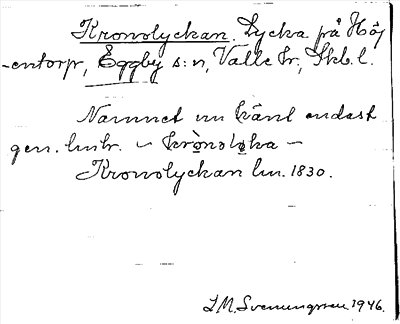 Kronolyckan. Lycka på Höj
-entorp, Eggby s:n, Valle hr, Skb. l.
Namnet nu känt endast
gen. lmtr. - krònoløka -
Kronolyckan lm. 1830.
I.M. Svenungsson 1946.